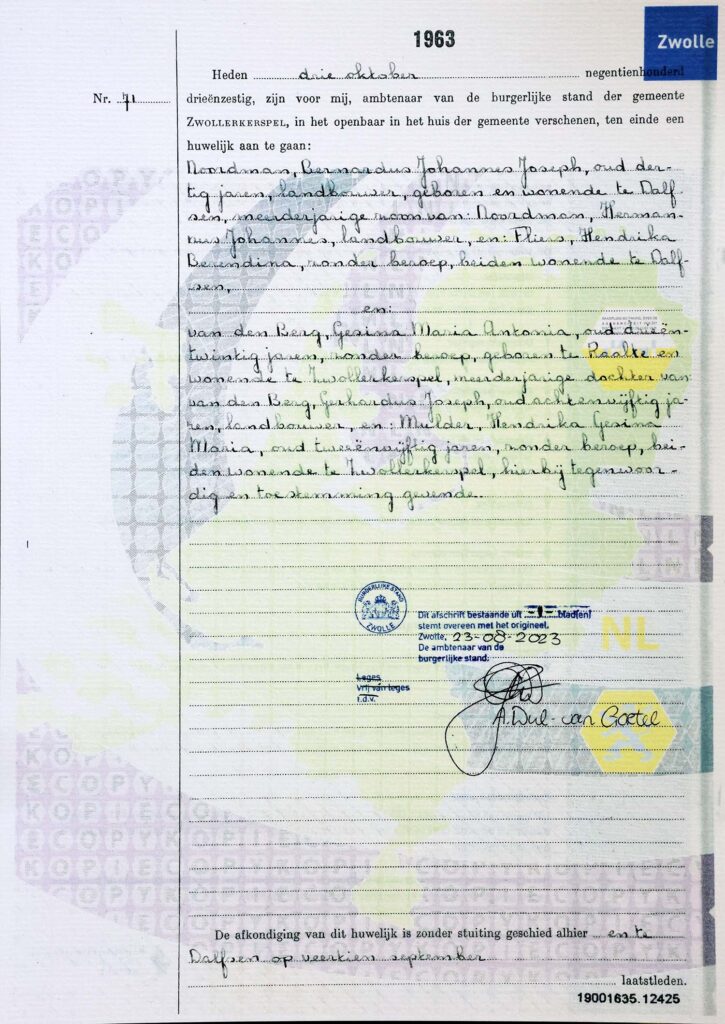 1963
Zwolle
Heden drie oktober negentienhonderd
Nr. 71 drieënzestig, zijn voor mij, ambtenaar van de burgerlijke stand der gemeente
ZWOLLERKERSPEL, in het openbaar in het huis der gemeente verschenen, ten einde een
huwelijk aan te gaan:
Noordman, Bernardus Johannes Joseph, oud der-
tig jaren, landbouwer, geboren en wonende te Dalf
sen, meerderjarige zoon van: Noordman, Herman-
nus Johannes, landbouwer, en: Fliers, Hendrika
Berendina, zonder beroep, beiden wonende te Dalf-
sen,
en:
van den Berg, Gesina Maria Antonia, oud drieën-
twintig jaren, zonder beroep, geboren te Raalte en
wonende te Zwollerkerspel, meerderjarige dochter van
van den Berg, Gerhardus Joseph, oud achtenvijftig ja-
ren, landbouwer, en: Mulder, Hendrika Gesina
Maria, oud tweeënvijftig jaren, zonder beroep, bei-
den wonende te Zwollerkerspel, hierbij tegenwoor-
dig en toestemming gevende.
BURGERLIJKE STAND
ZWOLLE
Dit afschrift bestaande uit -1- blad(en)
stemt overeen met het origineel.
Zwolle, 23-08-2023
De ambtenaar van de
burgerlijke stand:
Leges
Vrij van leges
i.d.v.
NL
KOPIE COPY
De afkondiging van dit huwelijk is zonder stuiting geschied alhier en te
Dalfsen op veertien september
laatstleden.
19001635.12425